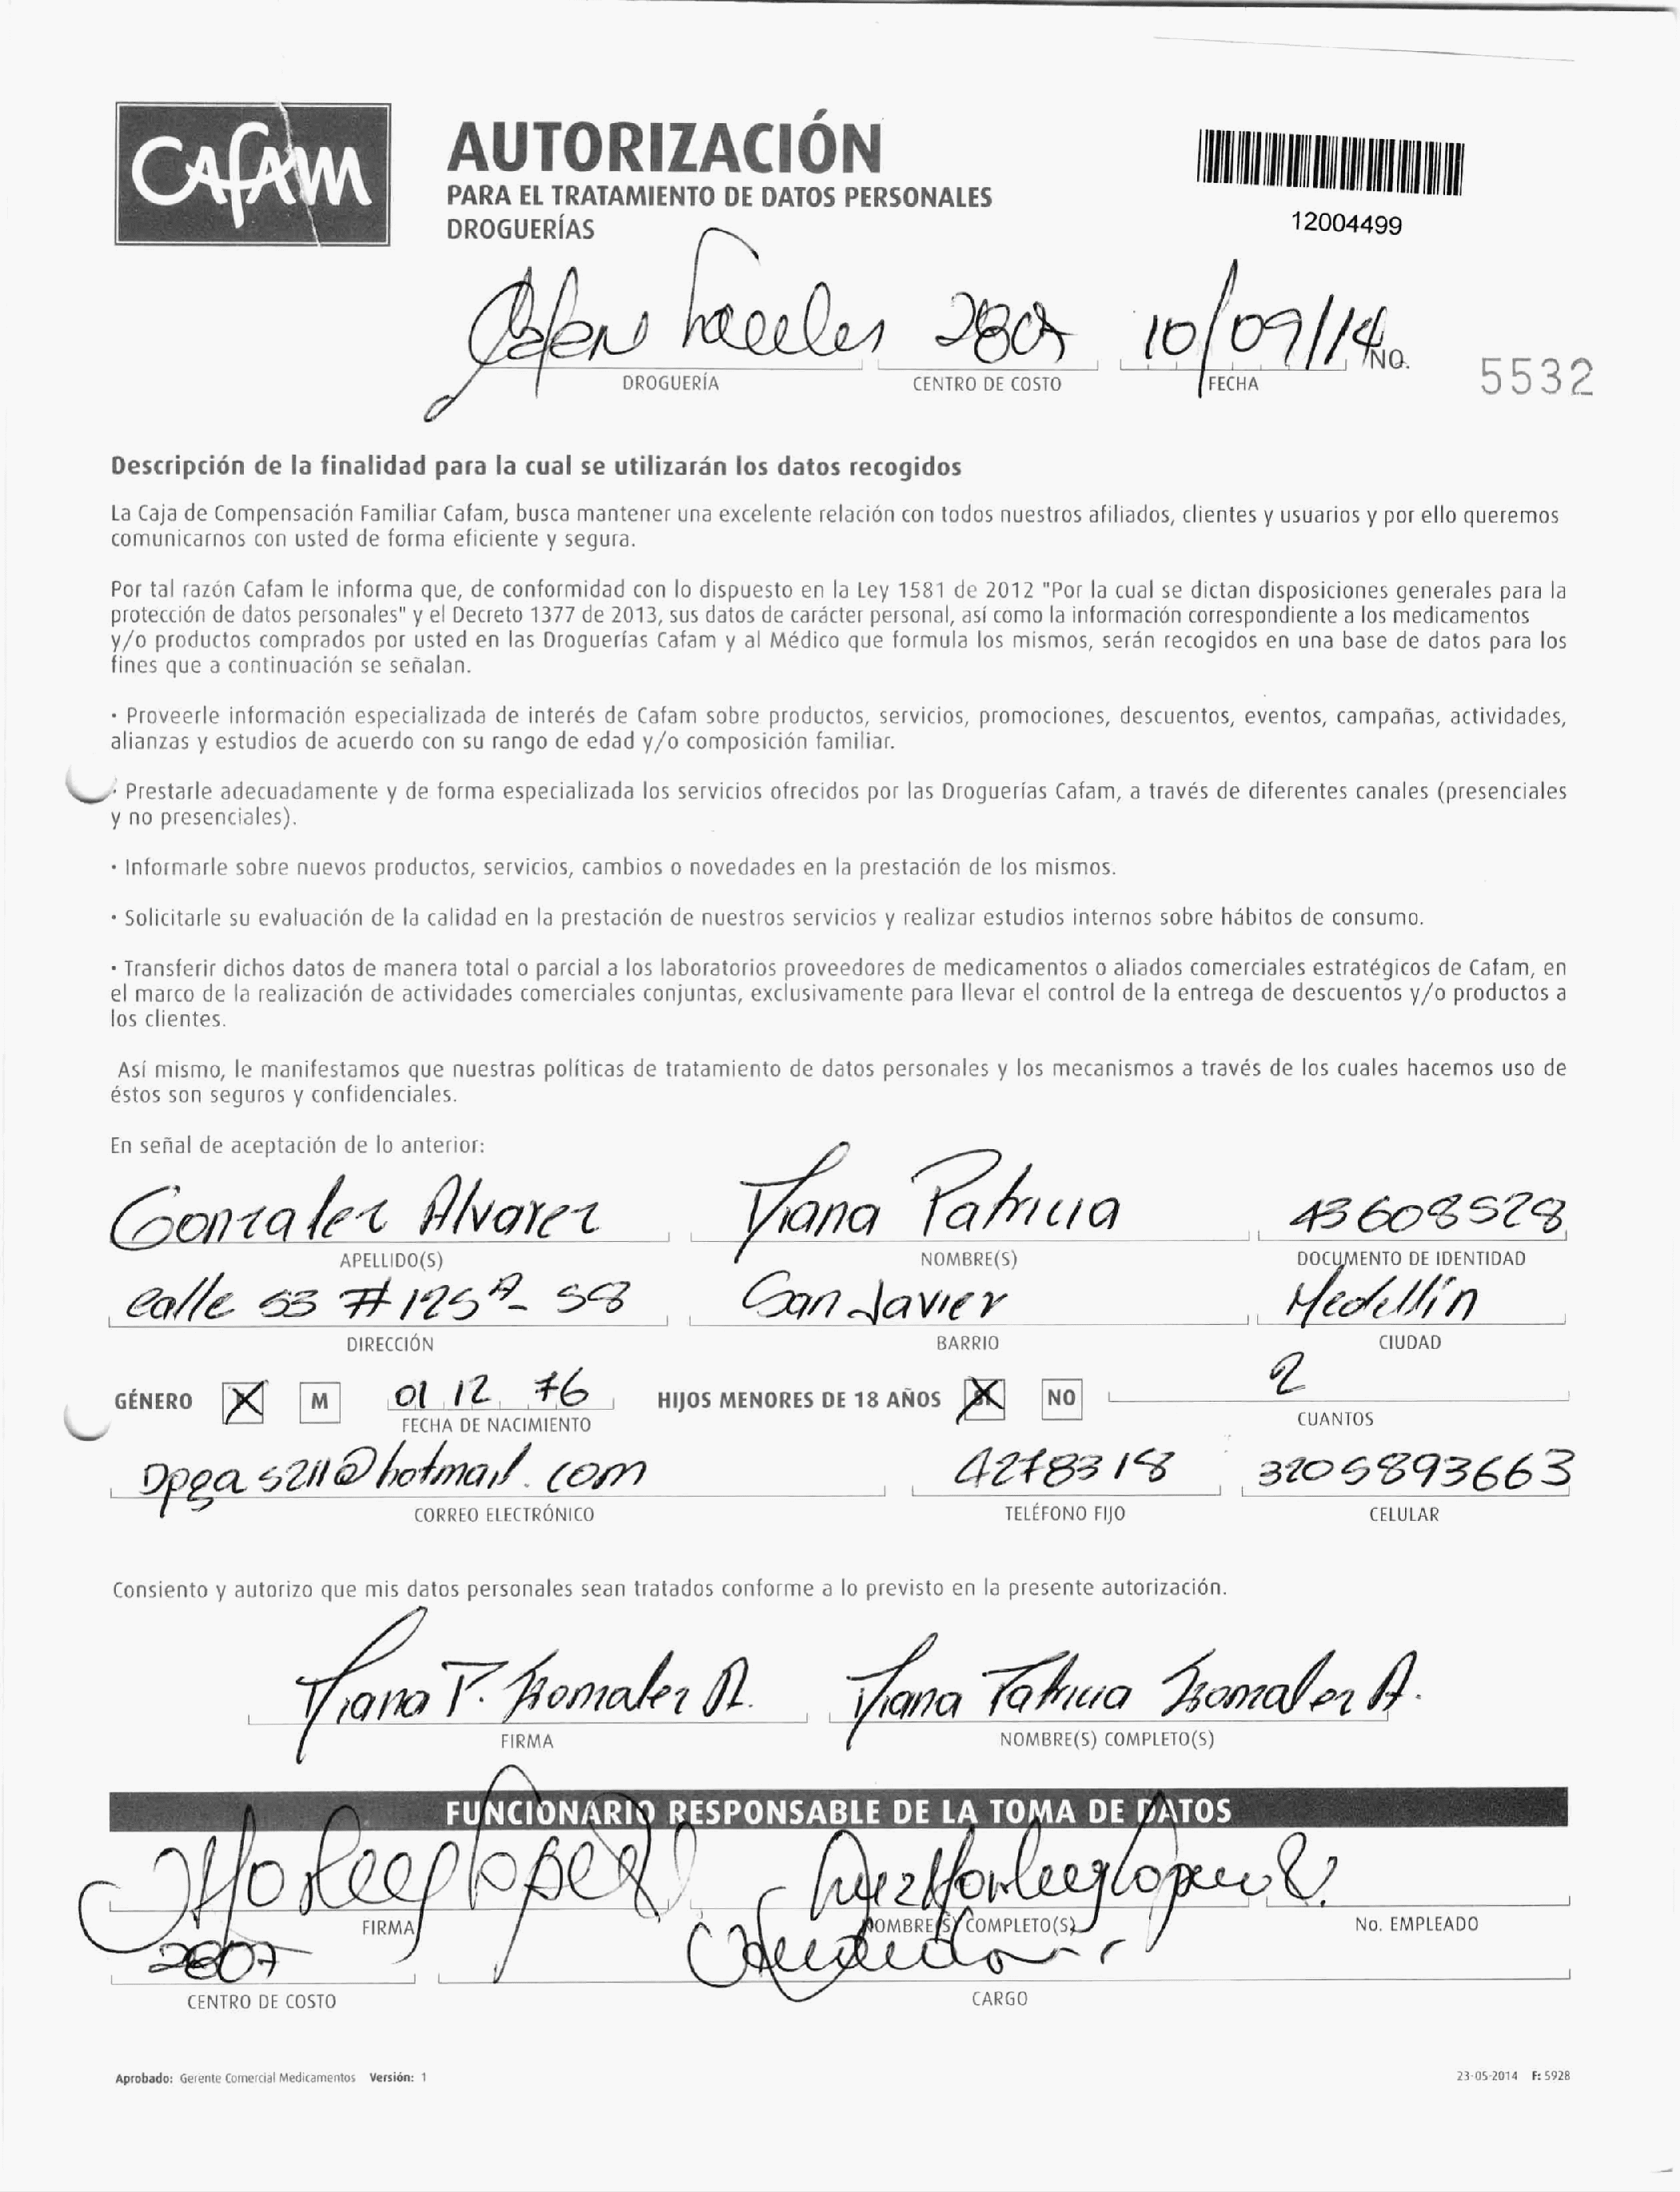 CAFAM
AUTORIZACIÓN
PARA EL TRATAMIENTO DE DATOS PERSONALES
DROGUERÍAS
12004499
10/09/14 NO. 5532
DROGUERÍA CENTRO DE COSTO FECHA
Descripción de la finalidad para la cual se utilizarán los datos recogidos
La Caja de Compensación Familiar Cafam, busca mantener una excelente relación con todos nuestros afiliados, clientes y usuarios y por ello queremos
comunicarnos con usted de forma eficiente y segura.
Por tal razón Cafam le informa que, de conformidad con lo dispuesto en la Ley 1581 de 2012 "Por la cual se dictan disposiciones generales para la
protección de datos personales" y el Decreto 1377 de 2013, sus datos de carácter personal, así como la información correspondiente a los medicamentos
y/o productos comprados por usted en las Droguerías Cafam y al Médico que formula los mismos, serán recogidos en una base de datos para los
fines que a continuación se señalan.
· Proveerle información especializada de interés de Cafam sobre productos, servicios, promociones, descuentos, eventos, campañas, actividades,
alianzas y estudios de acuerdo con su rango de edad y/o composición familiar.
· Prestarle adecuadamente y de forma especializada los servicios ofrecidos por las Droguerías Cafam, a través de diferentes canales (presenciales
y no presenciales).
· Informarle sobre nuevos productos, servicios, cambios o novedades en la prestación de los mismos.
· Solicitarle su evaluación de la calidad en la prestación de nuestros servicios y realizar estudios internos sobre hábitos de consumo.
· Transferir dichos datos de manera total o parcial a los laboratorios proveedores de medicamentos o aliados comerciales estratégicos de Cafam, en
el marco de la realización de actividades comerciales conjuntas, exclusivamente para llevar el control de la entrega de descuentos y/o productos a
los clientes.
Así mismo, le manifestamos que nuestras políticas de tratamiento de datos personales y los mecanismos a través de los cuales hacemos uso de
éstos son seguros y confidenciales.
En señal de aceptación de lo anterior:
Gonzalez Alvarez Diana Patricia 43608528
APELLIDO(S) NOMBRE(S) DOCUMENTO DE IDENTIDAD
calle 53 # 125A- 58 San Javier Medellín
DIRECCIÓN BARRIO CIUDAD
GÉNERO X M 01 12 76 HIJOS MENORES DE 18 AÑOS SI NO 2
FECHA DE NACIMIENTO CUANTOS
Dpga5211@hotmail.com 4278318 3205893663
CORREO ELECTRÓNICO TELÉFONO FIJO CELULAR
Consiento y autorizo que mis datos personales sean tratados conforme a lo previsto en la presente autorización.
Diana P. Gonzalez A. Diana Patricia Gonzalez A.
FIRMA NOMBRE(S) COMPLETO(S)
FUNCIONARIO RESPONSABLE DE LA TOMA DE DATOS
FIRMA NOMBRE(S) COMPLETO(S) No. EMPLEADO
2807
CENTRO DE COSTO CARGO
Aprobado: Gerente Comercial Medicamentos Versión: 1 23-05-2014 F: 5928